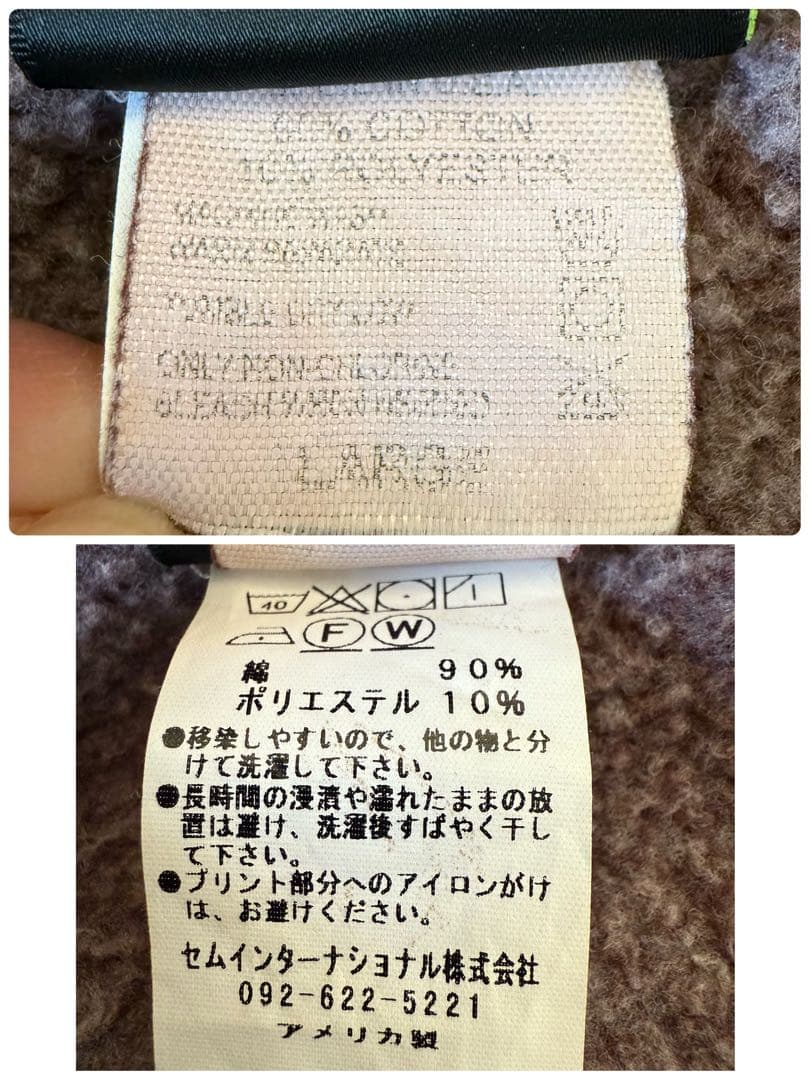 90% COTTON
10% POLYESTER
TUMBLE DRY LOW
ONLY NON-CHLORINE
BLEACH WHEN NEEDED
LARGE
40
F W
綿 90%
ポリエステル 10%
●移染しやすいので、他の物と分
けて洗濯して下さい。
●長時間の浸漬や濡れたままの放
置は避け、洗濯後すばやく干し
て下さい。
●プリント部分へのアイロンがけ
は、お避けください。
セムインターナショナル株式会社
092-622-5221
アメリカ製